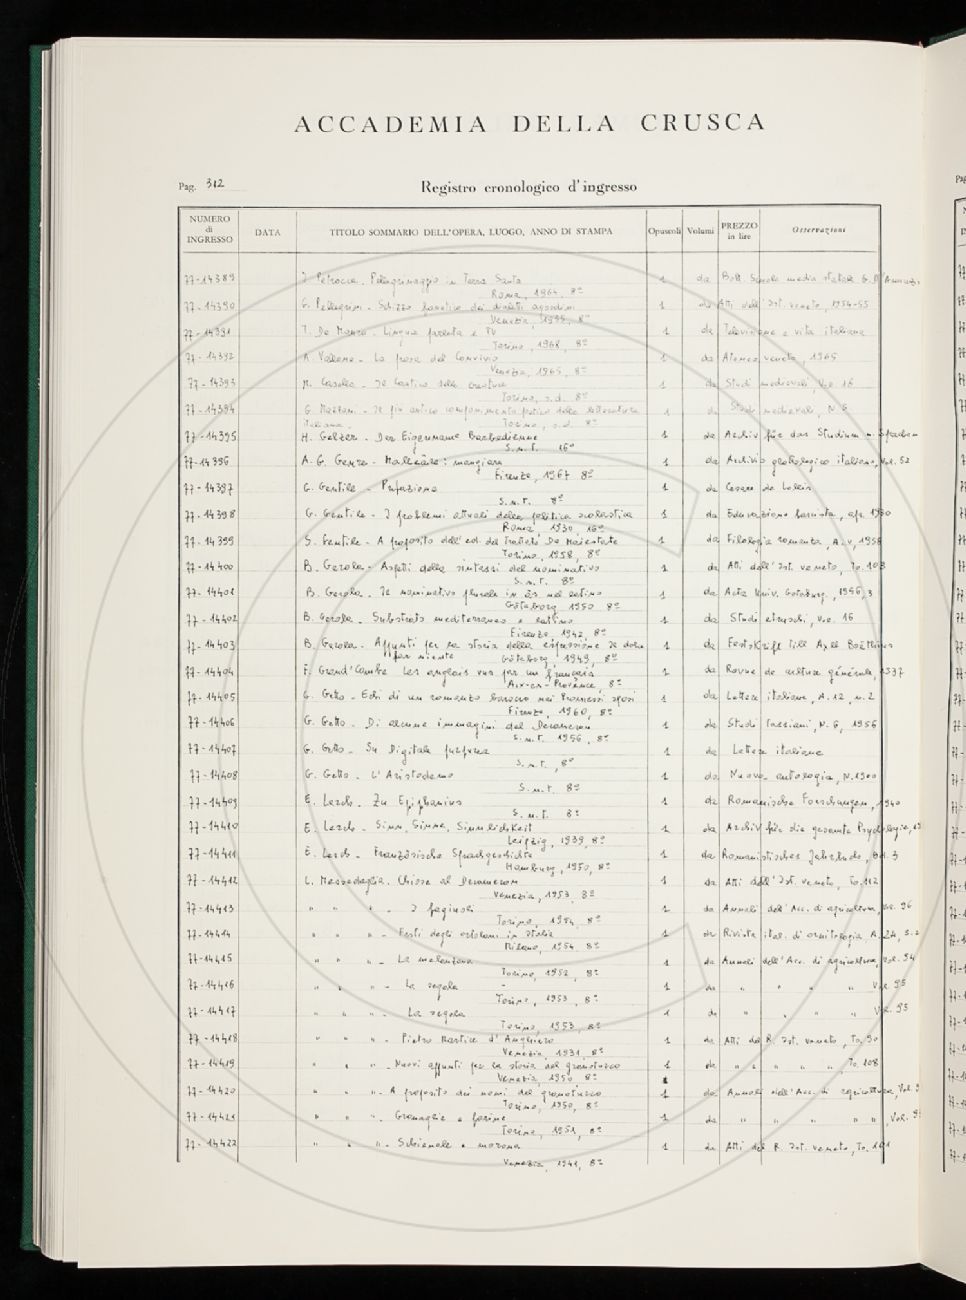 ACCADEMIA DELLA CRUSCA
Pag. 312
Registro cronologico d'ingresso
NUMERO di INGRESSO DATA TITOLO SOMMARIO DELL'OPERA, LUOGO, ANNO DI STAMPA Opuscoli Volumi PREZZO in lire Osservazioni
77-14389 Petrocchi. Pellegrinaggio in Terra Santa 1 da Boll. Scuola media statale G. D'
Roma, 1964, 8°
77-14390 G. Pellegrini - Schizzo fonetico dei dialetti agordini 1 da Atti dell'Ist. veneto, 1954-55
Venezia, 1955, 8°
77-14391 T. De Mauro - Lingua parlata e TV 1 da Televisione e vita italiana
Torino, 1968, 8°
77-14392 A. Vallone - La prosa del Convivio 1 da Ateneo veneto, 1965
Venezia, 1965, 8°
77-14393 M. Casella - Il Cantico delle creature 1 da Studi medievali, Vol. 16
Torino, s.d. 8°
77-14394 G. Mazzoni - Il più antico componimento poetico della letteratura 1 da Studi medievali, N.S.
italiana - Torino, s.d. 8°
77-14395 H. Gelzer - Der Eigenname 1 da Archiv für das Studium n. Sprachen
S.n.t. 16°
77-14396 A. G. - mangiare 1 da Archivio glottologico italiano, Vol. 52
Firenze, 1967 8°
77-14397 G. Gentile - Prefazione 1 da Cesare de Lollis
S.n.t. 8°
77-14398 G. Gentile - I problemi attuali della politica scolastica 1 da Educazione fascista, apr. 1930
Roma, 1930, 16°
77-14399 S. Gentile - A proposito dell'ed. del trattato De Maiestate 1 da Filologia romanza, A. V, 1958
Torino, 1958, 8°
77-14400 B. Gerola - Aspetti della sintassi del nominativo 1 da Atti dell'Ist. veneto, To. 108
S.n.t. 8°
77-14401 B. Gerola - Il nominativo plurale in ās nel latino 1 da Acta Univ. Gotoburg., 3
Göteborg 1950 8°
77-14402 B. Gerola - Substrato mediterraneo e latino 1 da Studi etruschi, Vol. 16
Firenze, 1942, 8°
77-14403 B. Gerola - Appunti per la storia della espressione 1 da Festskrift till Axel Boëthius
per niente Göteborg, 1949, 8°
77-14404 F. Grand'Combe Les anglais vus par un français 1 da Revue de culture générale,
Aix-en-Provence, 8°
77-14405 G. Getto - Echi di un romanzo barocco nei Promessi sposi 1 da Lettere italiane, A. 12, n. 2
Firenze, 1960, 8°
77-14406 G. Getto - Di alcune immagini del Decameron 1 da Studi tassiani, N. 6, 1956
S.n.t. 1956, 8°
77-14407 G. Getto - Su Digitale purpurea 1 da Lettere italiane
S.n.t., 8°
77-14408 G. Getto - L'Aristodemo 1 da Nuova antologia, N. 1900
S.n.t. 8°
77-14409 E. Lerch - Zu Epiphanius 1 da Romanische Forschungen, 1940
S.n.t. 8°
77-14410 E. Lerch - Sinn, Sinne, Sinnlichkeit 1 da Archiv für die gesamte Psychologie,
Leipzig, 1939, 8°
77-14411 E. Lerch - Französische Sprachgeschichte 1 da Romanistisches Jahrbuch, Bd. 3
Hamburg, 1950, 8°
77-14412 L. Messedaglia. Chiose al Decameron 1 da Atti dell'Ist. veneto, To. 112
Venezia, 1953, 8°
77-14413 " " " - I fagiuoli 1 da Annali dell'Acc. di agricoltura, Vol. 96
Torino, 1954, 8°
77-14414 " " " - Fasti degli ortolani in Italia 1 da Rivista ital. di ornitologia, A. 24, s. 2
Milano, 1954, 8°
77-14415 " " " - La melanzana 1 da Annali dell'Acc. di agricoltura, Vol. 94
Torino, 1952, 8°
77-14416 " " " - La segala 1 da " " " " Vol. 95
Torino, 1953, 8°
77-14417 " " " - La segala 1 da " " " Vol. 95
Torino, 1953, 8°
77-14418 " " " - Pietro Martire d'Anghiera 1 da Atti del R. Ist. veneto, To. 90
Venezia, 1931, 8°
77-14419 " " " - Nuovi appunti per la storia del granoturco 1 da " " " " To. 108
Venezia, 1950, 8°
77-14420 " " " - A proposito dei nomi del granoturco 1 da Annali dell'Acc. di agricoltura, Vol. 9
Torino, 1950, 8°
77-14421 " " " - Granaglie e farine 1 da " " " " " , Vol. 9
Torino, 1951, 8°
77-14422 " " " - Schienale e morona 1 da Atti del R. Ist. veneto, To. 101
Venezia, 1941, 8°